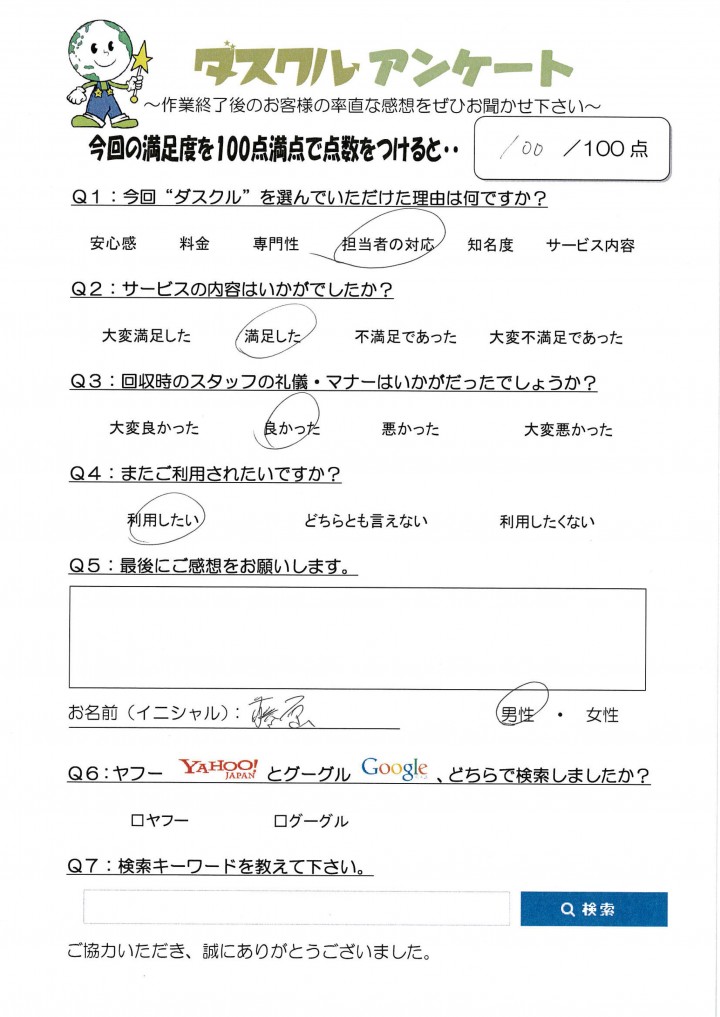 ダスクル アンケート
～作業終了後のお客様の率直な感想をぜひお聞かせ下さい～
今回の満足度を100点満点で点数をつけると・・ 100 ／100 点
Q1：今回“ダスクル”を選んでいただけた理由は何ですか？
安心感 料金 専門性 担当者の対応 知名度 サービス内容
Q2：サービスの内容はいかがでしたか？
大変満足した 満足した 不満足であった 大変不満足であった
Q3：回収時のスタッフの礼儀・マナーはいかがだったでしょうか？
大変良かった 良かった 悪かった 大変悪かった
Q4：またご利用されたいですか？
利用したい どちらとも言えない 利用したくない
Q5：最後にご感想をお願いします。
お名前（イニシャル）： 藤原 男性 ・ 女性
Q6：ヤフー YAHOO! JAPAN とグーグル Google 、どちらで検索しましたか？
□ヤフー □グーグル
Q7：検索キーワードを教えて下さい。
検索
ご協力いただき、誠にありがとうございました。